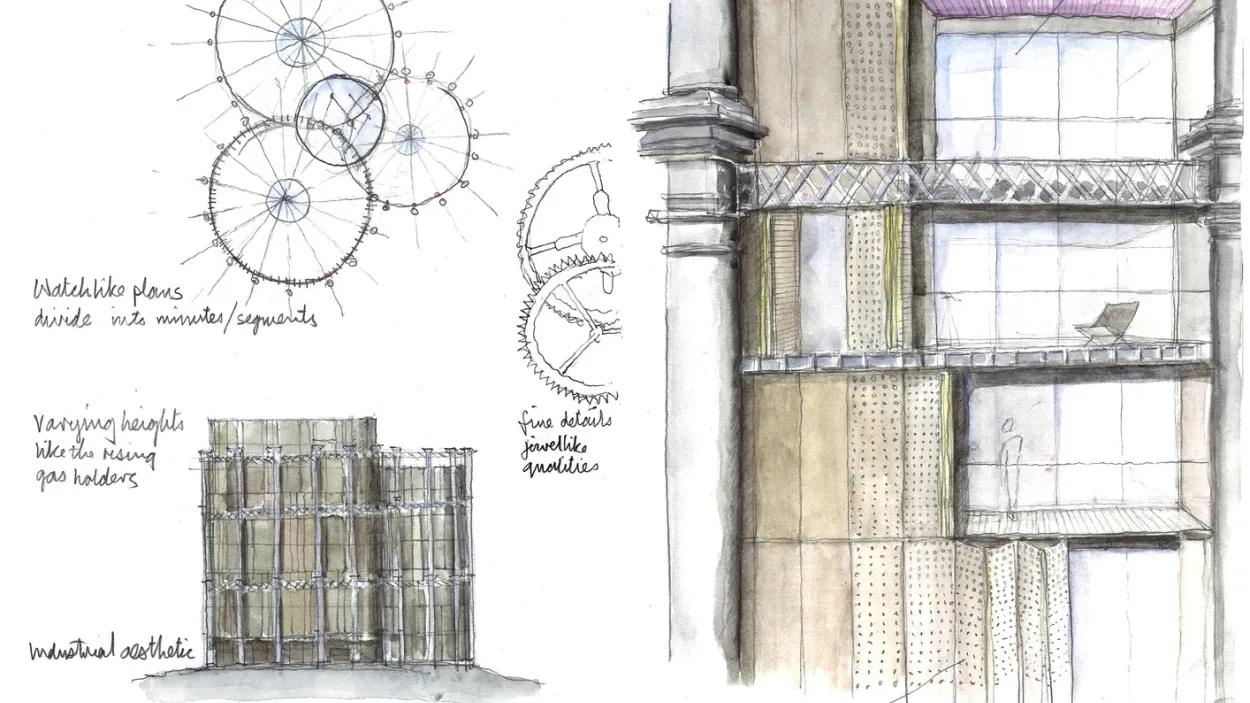 Watchlike plans
divide into minutes/segments
Varying heights
like the rising
gas holders
fine details
jewellike
qualities
Industrial aesthetic